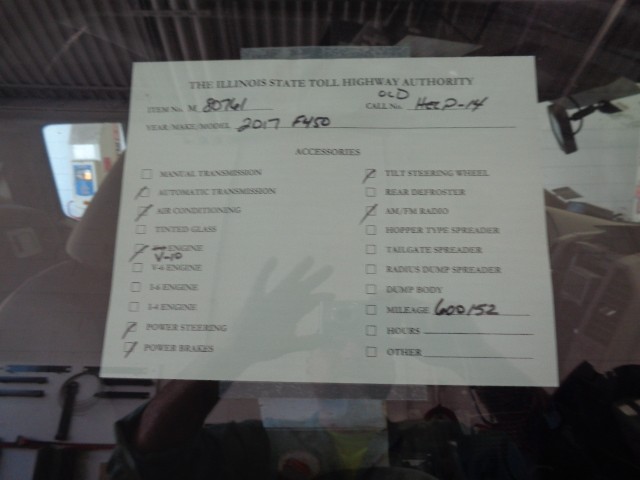 THE ILLINOIS STATE TOLL HIGHWAY AUTHORITY
OLD
ITEM No. M 80761 CALL No. HELP-14
YEAR/MAKE/MODEL 2017 F450
ACCESSORIES
MANUAL TRANSMISSION
AUTOMATIC TRANSMISSION
AIR CONDITIONING
TINTED GLASS
ENGINE
V-10
V-6 ENGINE
I-6 ENGINE
I-4 ENGINE
POWER STEERING
POWER BRAKES
TILT STEERING WHEEL
REAR DEFROSTER
AM/FM RADIO
HOPPER TYPE SPREADER
TAILGATE SPREADER
RADIUS DUMP SPREADER
DUMP BODY
MILEAGE 600152
HOURS
OTHER